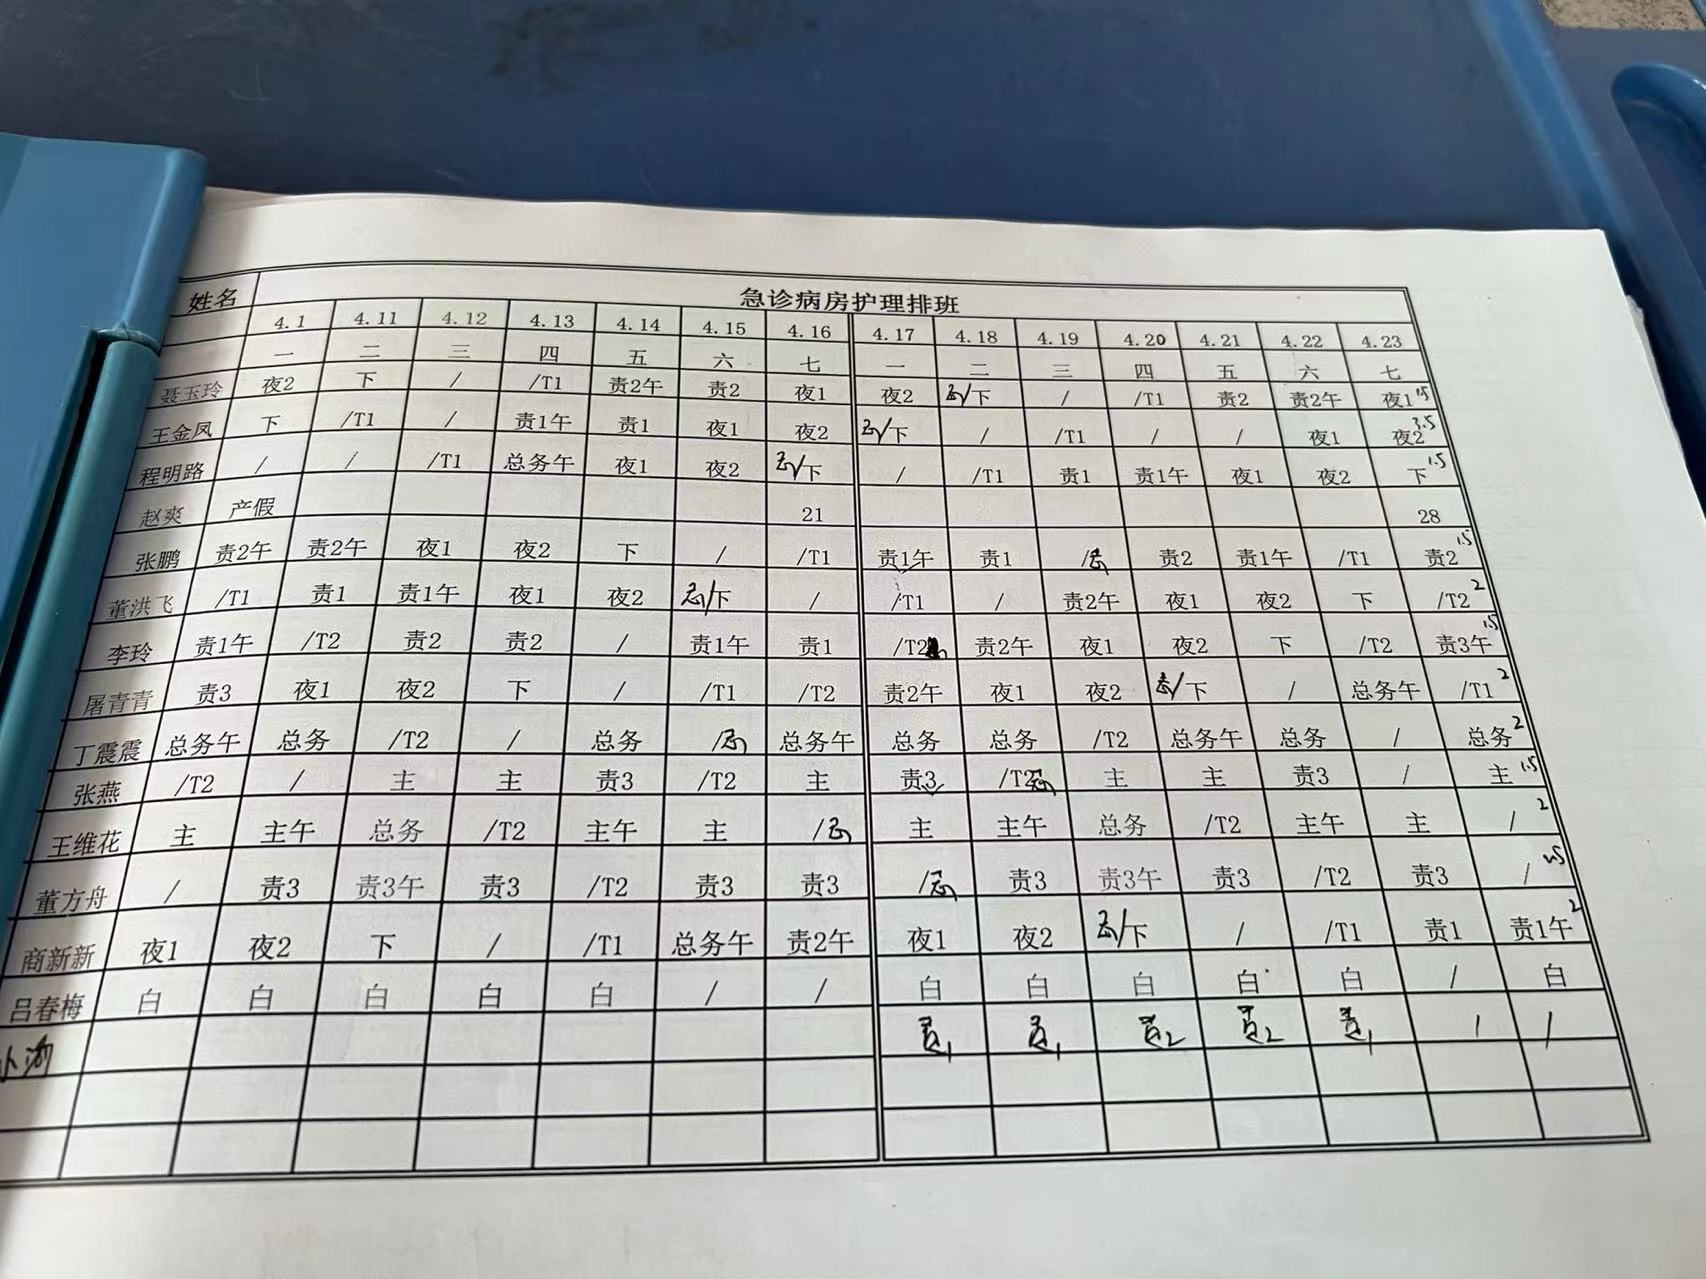 姓名 急诊病房护理排班
4.1 4.11 4.12 4.13 4.14 4.15 4.16 4.17 4.18 4.19 4.20 4.21 4.22 4.23
一 二 三 四 五 六 七 一 二 三 四 五 六 七
聂玉玲 夜2 下 / /T1 责2午 责2 夜1 夜2 /下 / /T1 责2 责2午 夜1 1.5
王金凤 下 /T1 / 责1午 责1 夜1 夜2 /下 / /T1 / / 夜1 夜2 3.5
程明路 / / /T1 总务午 夜1 夜2 /下 / /T1 责1 责1午 夜1 夜2 下 1.5
赵爽 产假 21 28
张鹏 责2午 责2午 夜1 夜2 下 / /T1 责1午 责1 / 责2 责1午 /T1 责2 1.5
董洪飞 /T1 责1 责1午 夜1 夜2 /下 / /T1 / 责2午 夜1 夜2 下 /T2 2
李玲 责1午 /T2 责2 责2 / 责1午 责1 /T2 责2午 夜1 夜2 下 /T2 责3午 1.5
屠青青 责3 夜1 夜2 下 / /T1 /T2 责2午 夜1 夜2 /下 / 总务午 /T1 2
丁震震 总务午 总务 /T2 / 总务 / 总务午 总务 总务 /T2 总务午 总务 / 总务 2
张燕 /T2 / 主 主 责3 /T2 主 责3 /T2 主 主 责3 / 主 1.5
王维花 主 主午 总务 /T2 主午 主 / 主 主午 总务 /T2 主午 主 / 2
董方舟 / 责3 责3午 责3 /T2 责3 责3 / 责3 责3午 责3 /T2 责3 /
商新新 夜1 夜2 下 / /T1 总务午 责2午 夜1 夜2 /下 / /T1 责1 责1午 2
吕春梅 白 白 白 白 白 / / 白 白 白 白 白 / 白
责1 责1 责2 责2 责1 / /